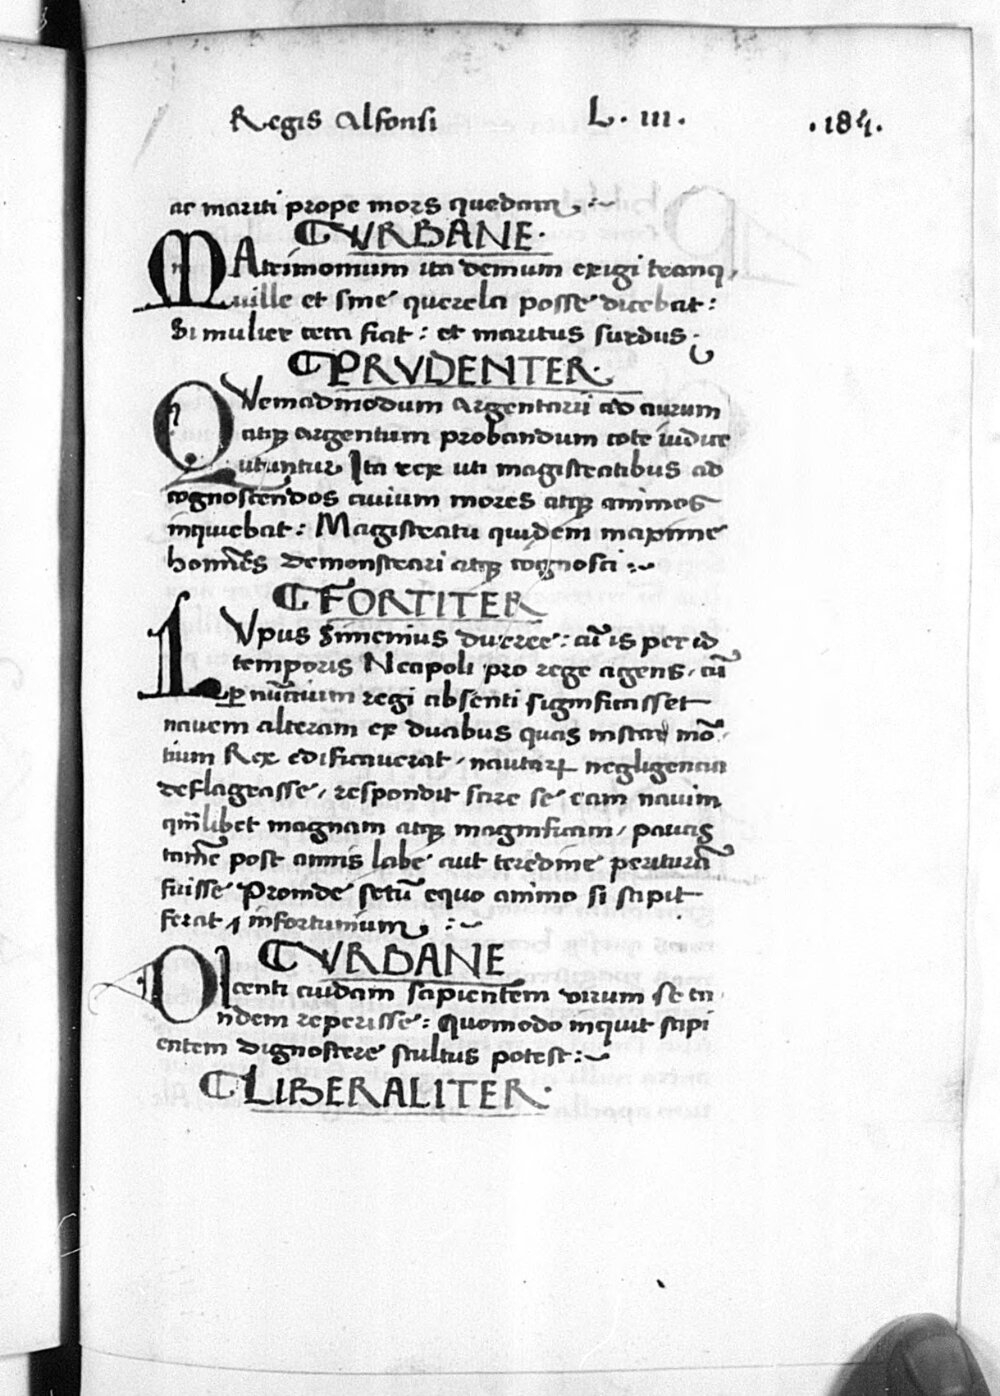 Regis Alfonsi L. III. .184.
ac mariti prope mors quedam :~
C VRBANE.
MAtrimonium ita demum exigi tranq,
uille et sine querela posse dicebat:
Si mulier ceca fiat: et maritus surdus.
C PRVDENTER.
QVemadmodum argentarii ad aurum
atqꝫ argentum probandum cote iudice
utuntur Ita rex uti magistratibus ad
cognoscendos ciuium mores atqꝫ animos
inquiebat: Magistratu quidem maxime
homines demonstrari atqꝫ cognosci :~
C FORTITER
LVpus Simenius dixere: cū is per id
temporis Neapoli pro rege agens, cū
ꝑ nūctium regi absenti significasset
nauem alteram ex duabus quas instar mō,
tium Rex edificauerat, nautaꝝ negligencia
deflagrasse, respondit scire se eam nauim
qm̄libet magnam atqꝫ magnificam, paucis
tamē post annis labe aut teredine perituram̄
fuisse Proinde setū equo animo si sapit
ferat infortunium :~
C VRBANE
DIcenti cuidam sapientem virum se tā
ndem reperisse: Quomodo inquit sapi
entem dignoscere stultus potest:~
C LIBERALITER.